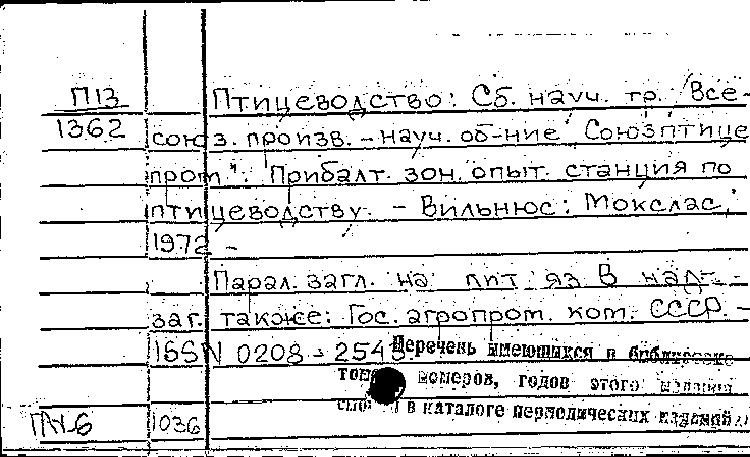 П13 Птицеводство: Сб. науч. тр. Все-
1362 союз. произв. - науч. об-ние "Союзптице
пром". Прибалт. зон. опыт. станция по
птицеводству. - Вильнюс: Мокслас,
1972 -
Парал. загл. на лит. яз. В надз-
заг. также: Гос. агропром. ком. СССР. -
ISSN 0208 - 2543
Перечень имеющихся в библиотеке
томов, номеров, годов этого издания
в каталоге периодических изданий
1036